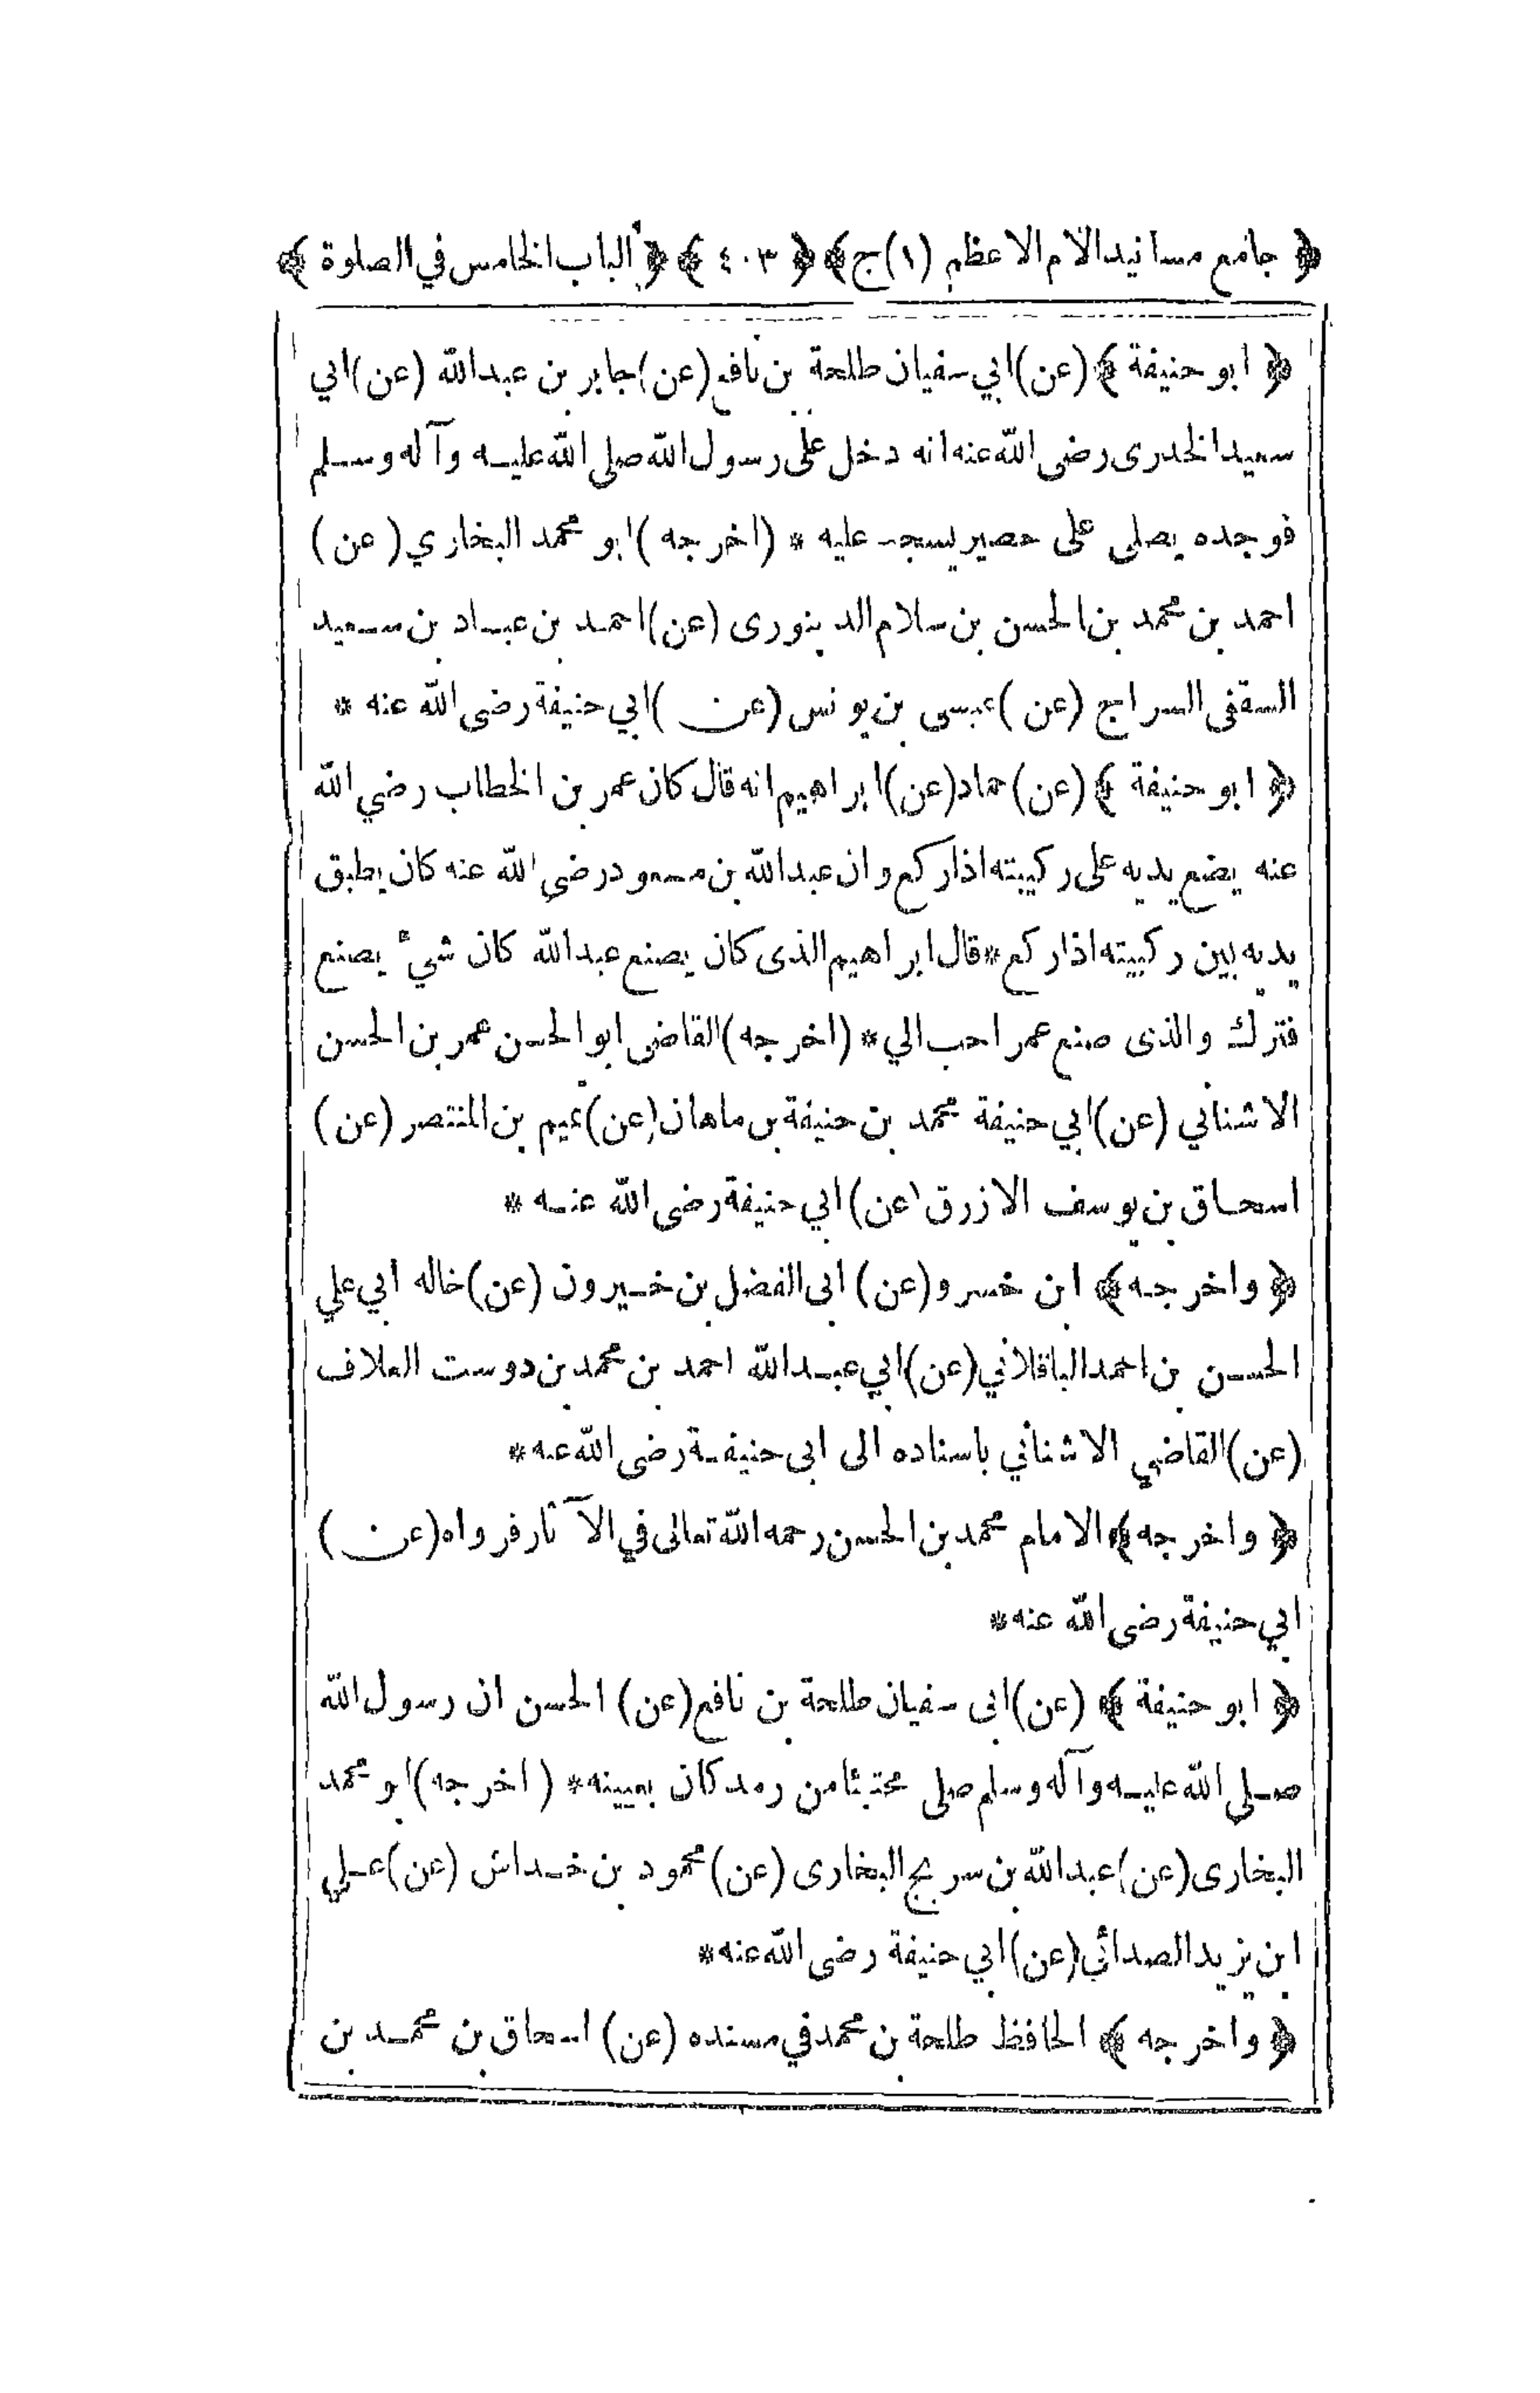 ﴿ جامع مسانيد الامام الاعظم (١)ج﴾ ﴿ ٤٠٣ ﴾ ﴿ الباب الخامس في الصلوة ﴾
﴿ ابو حنيفة ﴾ (عن) ابي سفيان طلحة بن نافع (عن) جابر بن عبدالله (عن) ابي
سعيد الخدرى رضى الله عنه انه دخل على رسول الله صلى الله عليه وآله وسلم
فوجده يصلى على حصير يسجد عليه * (اخرجه) ابو محمد البخاري (عن)
احمد بن محمد بن الحسن بن سلام الدينورى (عن) احمد بن عباد بن سعيد
السقفى السراج (عن) عيسى بن يونس (عن) ابي حنيفة رضى الله عنه *
﴿ ابو حنيفة ﴾ (عن) حماد (عن) ابراهيم انه قال كان عمر بن الخطاب رضي الله
عنه يضع يديه على ركبيته اذا ركع وان عبدالله بن مسعود رضى الله عنه كان يطبق
يديه بين ركبيته اذا ركع * قال ابراهيم الذى كان يصنع عبدالله كان شيء يصنع
فترك والذى صنع عمر احب الي * (اخرجه) القاضى ابو الحسن عمر بن الحسن
الاشناني (عن) ابي حنيفة محمد بن حنيفة بن ماهان (عن) تميم بن المنتصر (عن)
اسحاق بن يوسف الازرق (عن) ابي حنيفة رضى الله عنه *
﴿ واخرجه ﴾ ابن خسرو (عن) ابى الفضل بن خيرون (عن) خاله ابي علي
الحسن بن احمد الباقلاني (عن) ابي عبدالله احمد بن محمد بن دوست العلاف
(عن) القاضي الاشناني باسناده الى ابى حنيفة رضى الله عنه *
﴿ واخرجه ﴾ الامام محمد بن الحسن رحمه الله تعالى في الآثار فرواه (عن)
ابي حنيفة رضى الله عنه *
﴿ ابو حنيفة ﴾ (عن) ابى سفيان طلحة بن نافع (عن) الحسن ان رسول الله
صلى الله عليه وآله وسلم صلى محتبئا من رمد كان بعيينه * (اخرجه) ابو محمد
البخارى (عن) عبدالله بن سريج البخارى (عن) محمود بن خداش (عن) علي
ابن يزيد الصدائي (عن) ابي حنيفة رضى الله عنه *
﴿ واخرجه ﴾ الحافظ طلحة بن محمد في مسنده (عن) اسحاق بن محمد بن